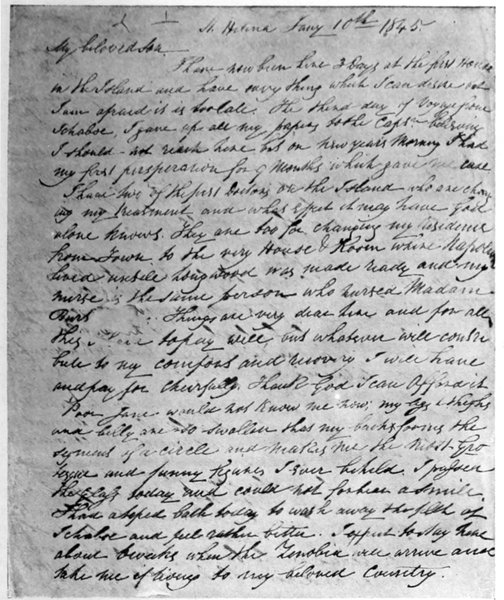 St Helena Jany 10th 1845.
My beloved Son.
I have now been here 3 Days at the first House
in the Island and have every thing which I can desire but
I am afraid it is too late. The third day of Voyage from
Ichaboe I gave up all my papers to the Captn believing
I should not reach here but on new years Morning I had
my first perspiration for 9 Months which gave me ease
I have two of the first Doctors on the Island who are chang
ing my treatment and what effect it may have God
alone knows. They are too for changing my residence
from Town to the very House & Room where Napoleon
lived untill Longwood was made ready and my
nurse is the same person who nursed Madam
Things are very dear here and for all
this I to pay well but whatever will contri
bute to my comfort and recovery I will have
and pay for cheerfully. Thank God I can afford it
Poor Jane would not know me now; my legs & thighs
and belly are so swollen that my back forms the
segment of a circle and makes me the most Gro
tesque and funny figure I ever beheld. I passed
the glass today and could not forbear a smile.
I had a hiped bath today to wash away the filth of
Ichaboe and feel rather better. I expect to stay here
about 2 weeks when the Zenobia will arrive and
take me if living to my beloved Country.